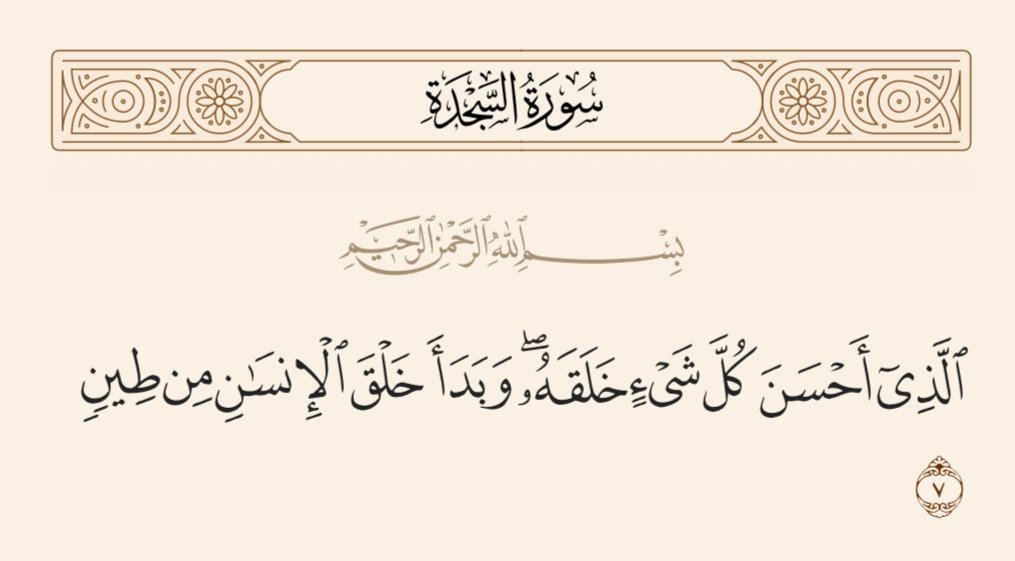 سُورَةُ السَّجْدَةِ
بِسْمِ ٱللَّهِ ٱلرَّحْمَٰنِ ٱلرَّحِيمِ
ٱلَّذِىٓ أَحْسَنَ كُلَّ شَىْءٍ خَلَقَهُۥ ۖ وَبَدَأَ خَلْقَ ٱلْإِنسَٰنِ مِن طِينٍ
٧